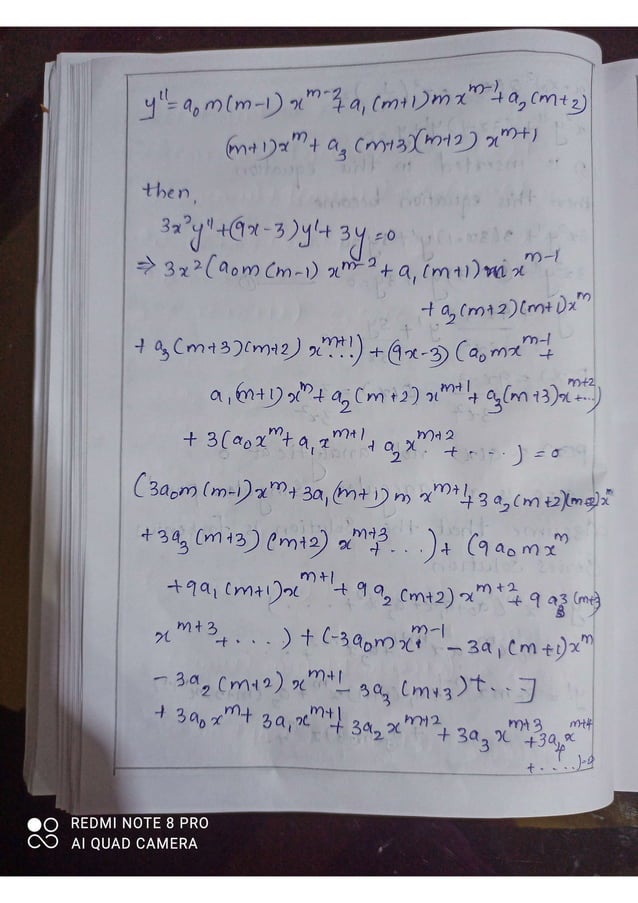 y'' = a₀ m(m-1) x^{m-2} + a₁ (m+1) m x^{m-1} + a₂ (m+2)
(m+1) x^m + a₃ (m+3)(m+2) x^{m+1}
then,
3x²y'' + (9x-3)y' + 3y = 0
⇒ 3x² (a₀m (m-1) x^{m-2} + a₁ (m+1) m x^{m-1}
+ a₂ (m+2) (m+1) x^m
+ a₃ (m+3) (m+2) x^{m+1} ...) + (9x-3) (a₀ m x^{m-1} +
a₁ (m+1) x^m + a₂ (m+2) x^{m+1} + a₃ (m+3) x^{m+2} + ...)
+ 3 (a₀ x^m + a₁ x^{m+1} + a₂ x^{m+2} + ....) = 0
(3a₀ m (m-1) x^m + 3a₁ (m+1) m x^{m+1} + 3a₂ (m+2)
+ 3a₃ (m+3) (m+2) x^{m+3} + ...) + (9 a₀ m x^m
+ 9a₁ (m+1) x^{m+1} + 9 a₂ (m+2) x^{m+2} + 9 a₃ (m+3)
x^{m+3} + ...) + (-3a₀ m x^{m-1} - 3a₁ (m+1) x^m
- 3a₂ (m+2) x^{m+1} - 3a₃ (m+3) + ...]
+ 3a₀ x^m + 3a₁ x^{m+1} + 3a₂ x^{m+2} + 3a₃ x^{m+3} + 3a₄ x^{m+4}
+ ....) = 0
REDMI NOTE 8 PRO
AI QUAD CAMERA